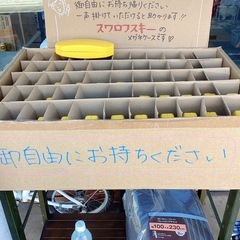 御自由にお持ち帰りください
一声掛けていただけると助かります!!
スワロフスキーの
メガネケースです♡
御自由にお持ちください
約100×230cm